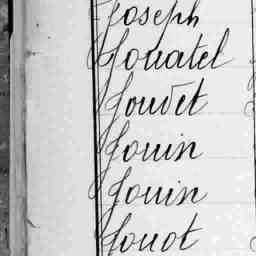 Joseph
Jouatel
Joudet
Jouin
Jouin
Jouot